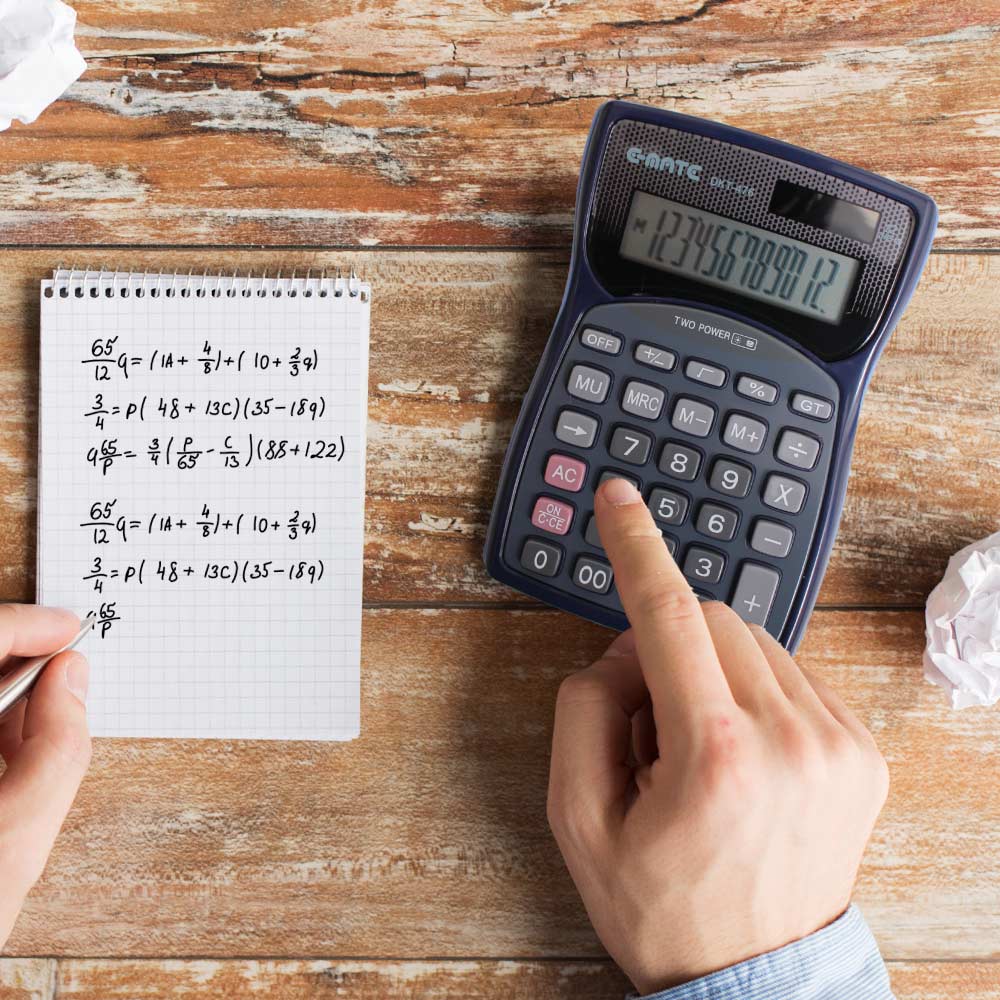 65/12 q = (1A + 4/8) + ( 10 + 2/3 q)
3/4 = P( 48 + 13C)(35-18q)
q 65/P = 3/4 (P/65 - C/13)(88+1.22)
65/12 q = (1A + 4/8) + ( 10 + 2/3 q)
3/4 = P( 48 + 13C)(35-18q)
65/P
DKT-476
M 123456789012
TWO POWER
OFF +/- √ % GT
MU MRC M− M+ ÷
→ 7 8 9 X
AC 5 6 −
ON C·CE 3 +
0 00